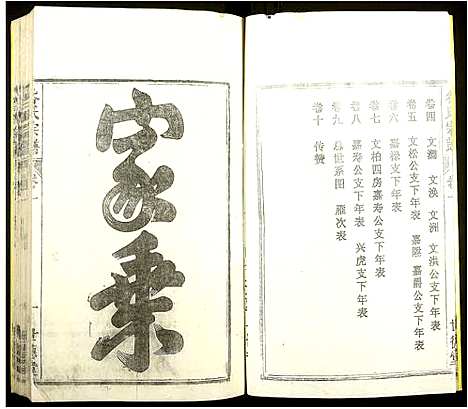 卷四 文澜 文涣 文洲 文洪公支下年表
卷五 文松公支下年表 嘉熙 嘉爵公支下年表
卷六 嘉松支下年表
卷七 文柏四房嘉寿公支下年表
卷八 嘉寿公支下年表 兴虎支下年表
卷九 总世系图 雁次表
卷十 传赞
家乘
氏宗谱